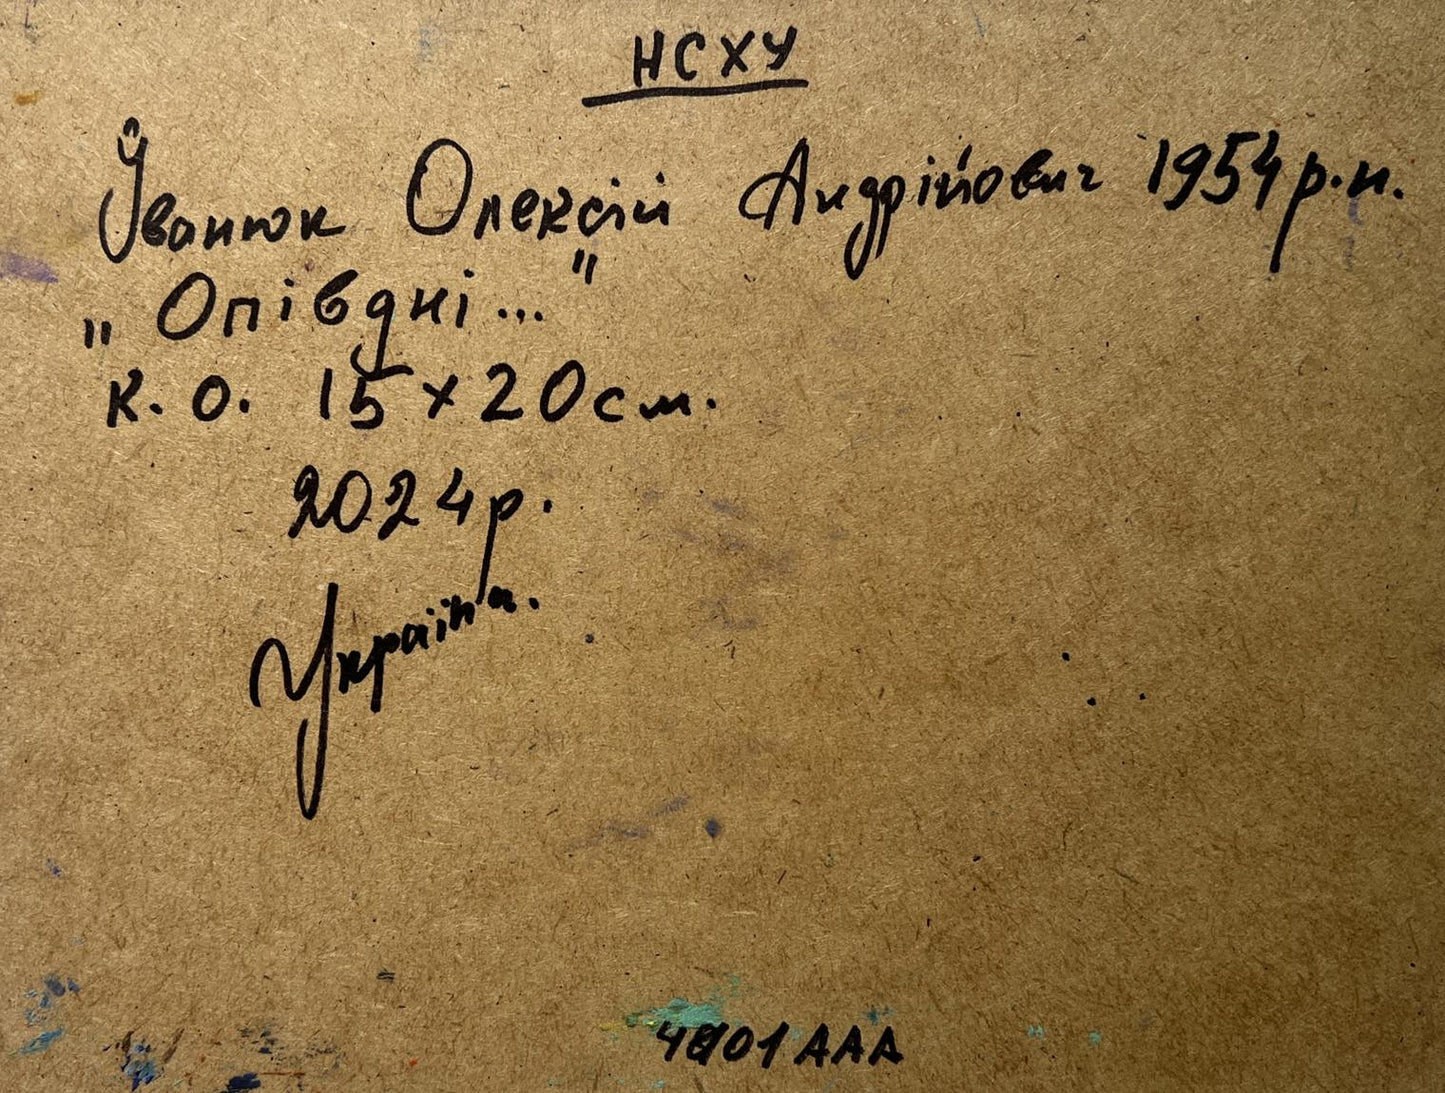 НСХУ
Іванюк Олексій Андрійович 1954 р.н.
„Опівдні..."
к. о. 15 х 20 см.
2024 р.
Україна.